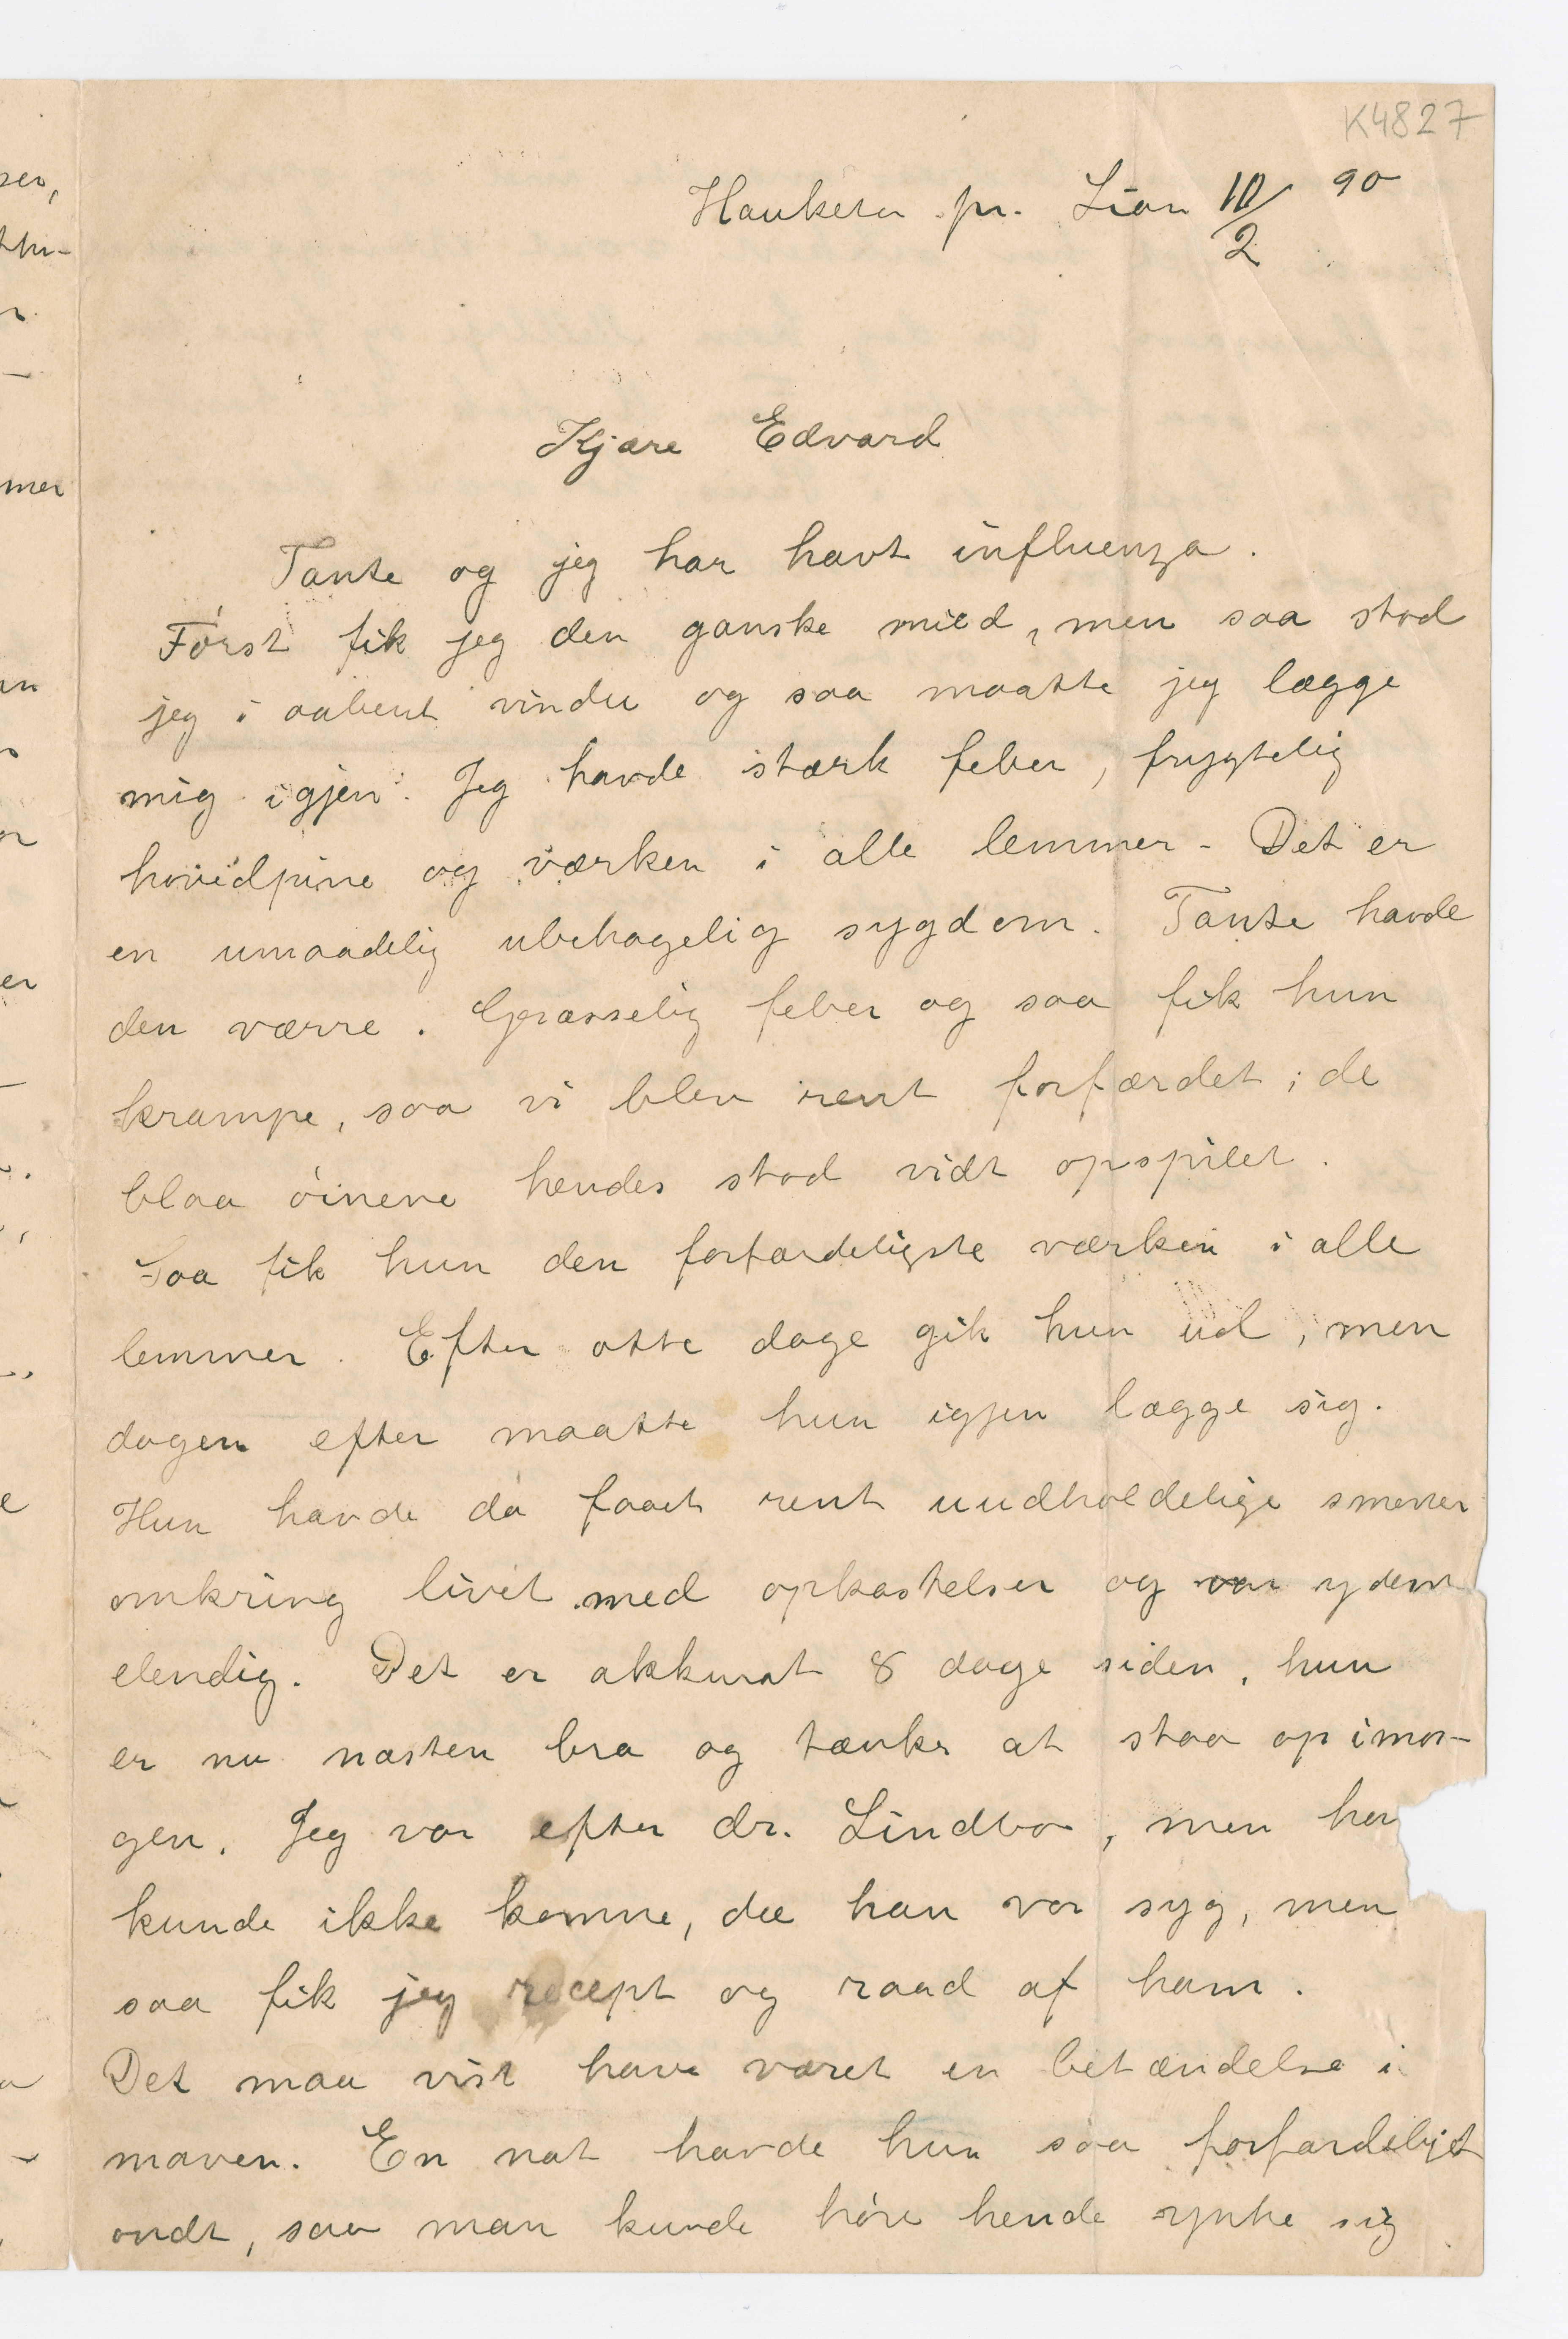 K4827
Hauketo pr. Lian 10/2 90
Kjære Edvard
Tante og jeg har havt influenza.
Først fik jeg den ganske mild, men saa stod
jeg i aabent vindu og saa maatte jeg lægge
mig igjen. Jeg havde stærk feber, frygtelig
hovedpine og værken i alle lemmer - Det er
en umaadelig ubehagelig sygdom. Tante havde
den værre. Græsselig feber og saa fik hun
krampe, saa vi blev rent forfærdet; de
blaa øinene hendes stod vidt opspilet.
Saa fik hun den forfærdeligste værken i alle
lemmer. Efter otte dage gik hun ud, men
dagen efter maatte hun igjen lægge sig.
Hun havde da faaet rent uudholdelige smerter
omkring livet med opkastelser og var yderst
elendig. Det er akkurat 8 dage siden, hun
er nu næsten bra og tænker at staa op imor-
gen. Jeg var efter dr. Lindboe, men han
kunde ikke komme, da han var syg, men
saa fik jeg recept og raad af ham.
Det maa vist have været en betændelse i
maven. En nat havde hun saa forfærdeligt
ondt, saa man kunde høre hende ynke sig
ser,
mer
er
e